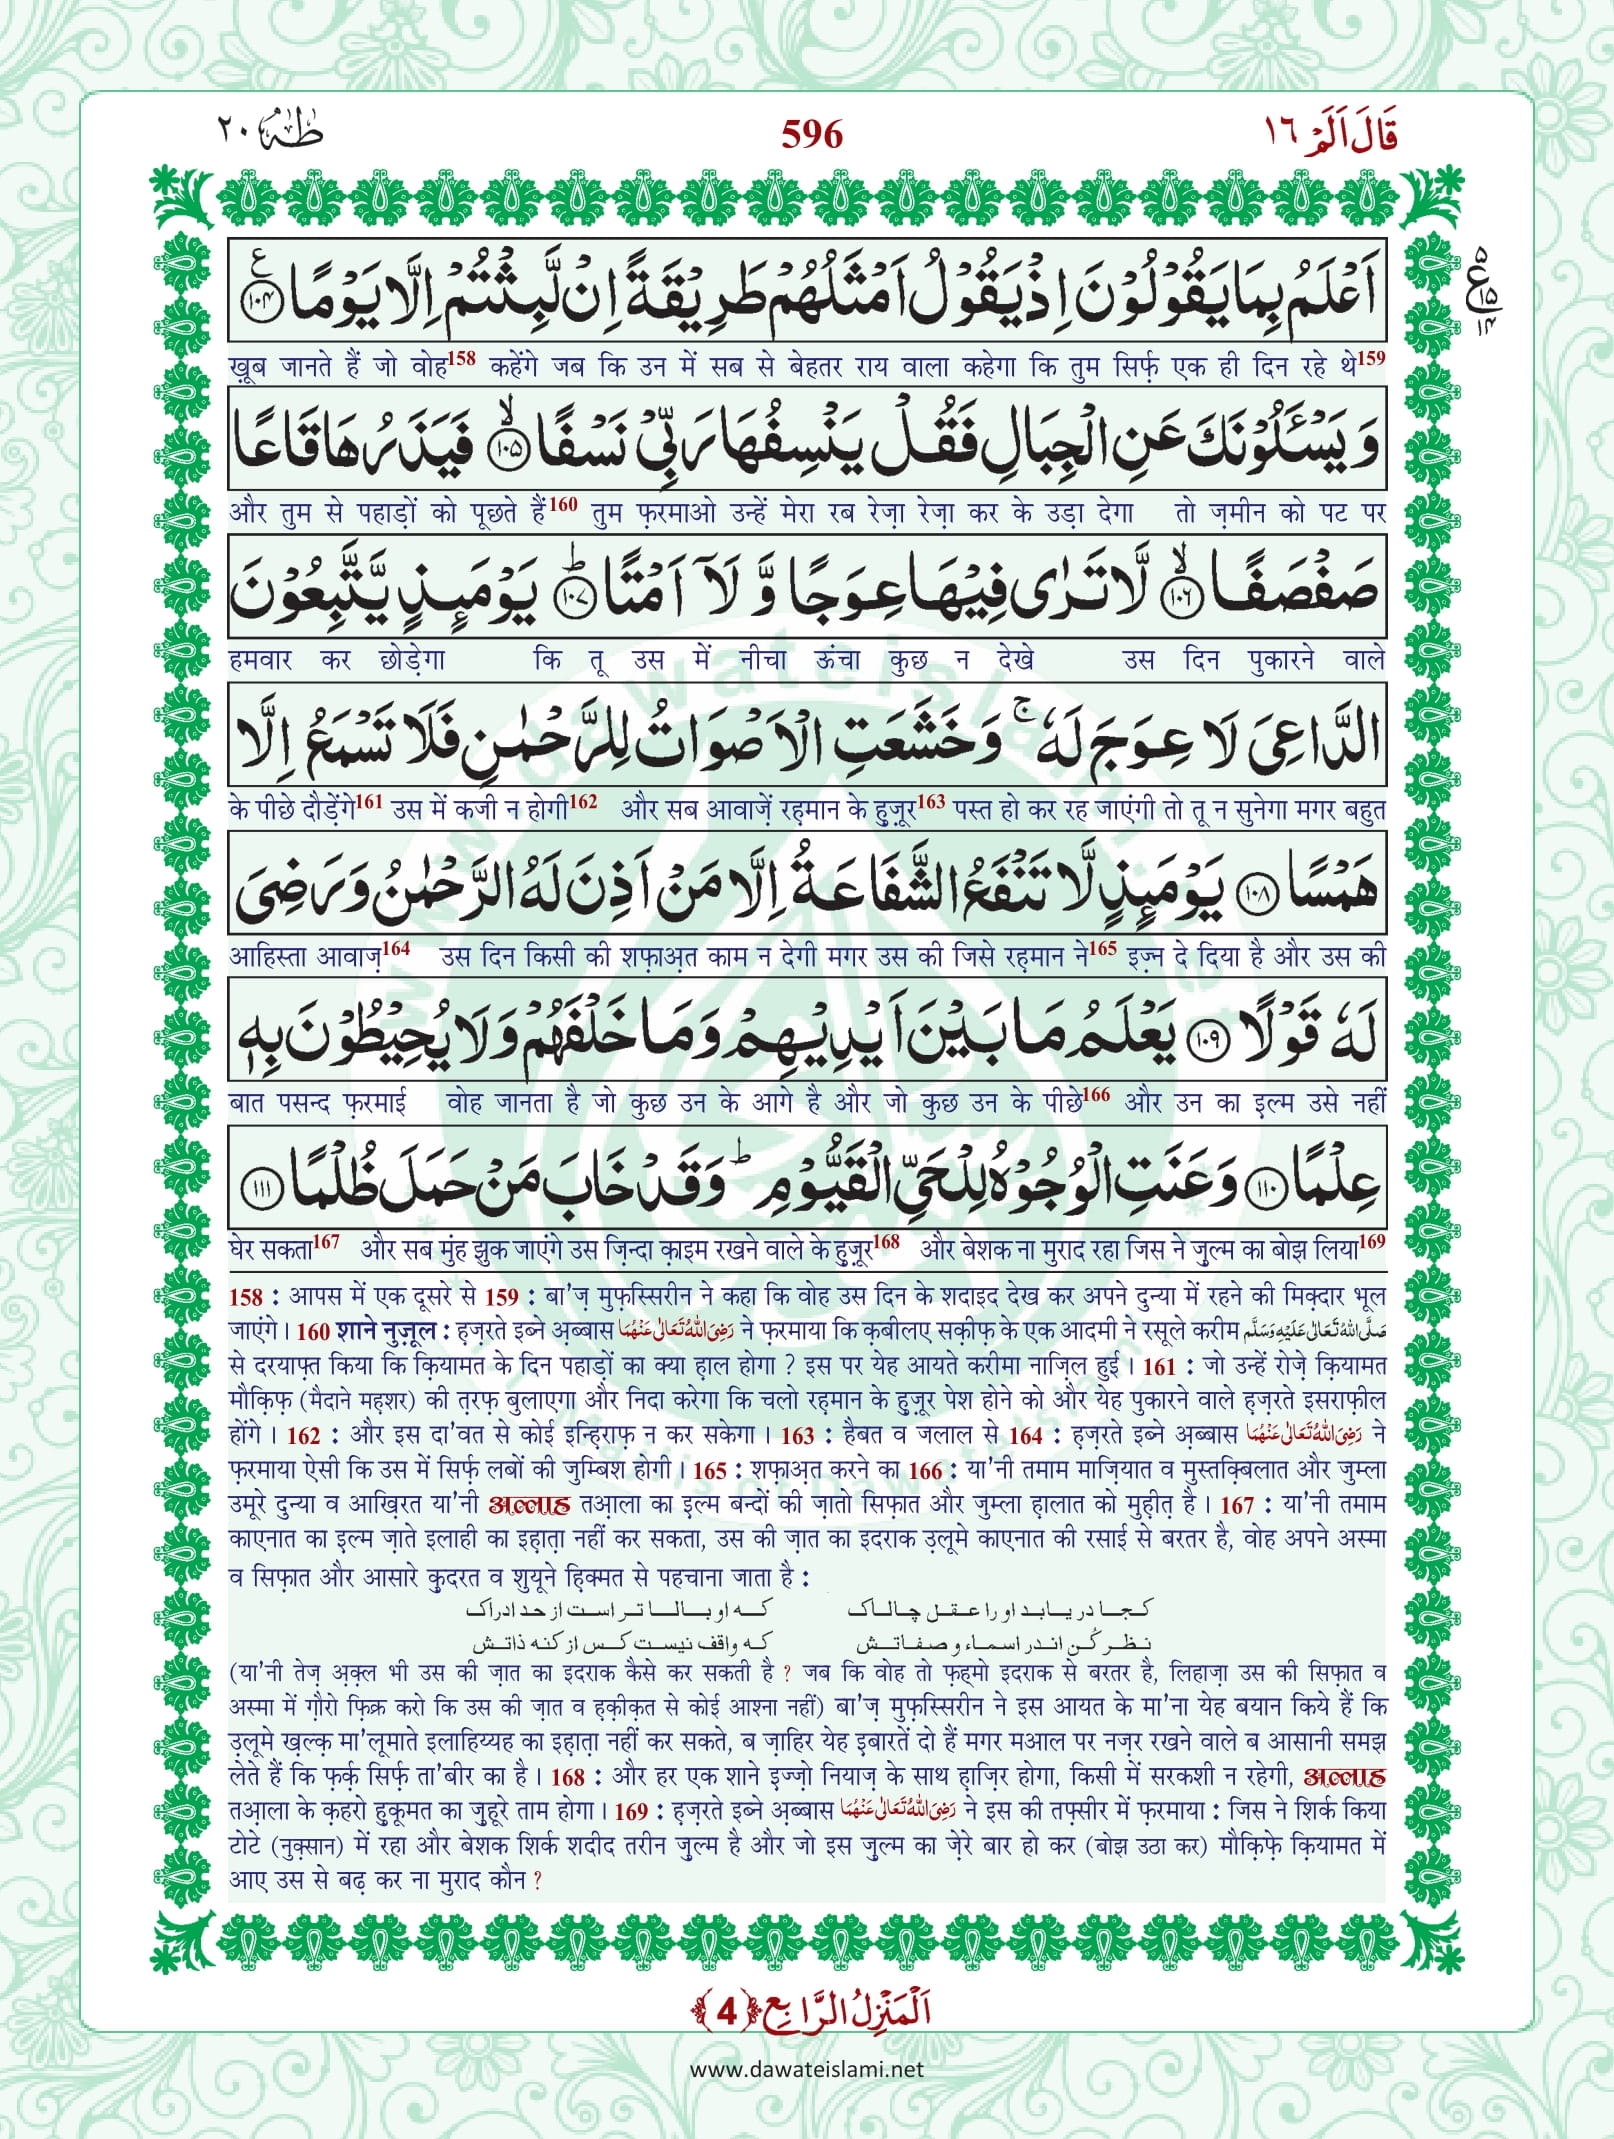 طٰهٰ ٢٠
596
قَالَ اَلَمْ ١٦
اَعْلَمُ بِمَا يَقُوْلُوْنَ اِذْ يَقُوْلُ اَمْثَلُهُمْ طَرِيْقَةً اِنْ لَّبِثْتُمْ اِلَّا يَوْمًا ﴿۱۰۴﴾ ع
ع ۵ ۱۵ ۱۴
ख़ूब जानते हैं जो वोह158 कहेंगे जब कि उन में सब से बेहतर राय वाला कहेगा कि तुम सिर्फ़ एक ही दिन रहे थे159
وَ يَسْـَٔلُوْنَكَ عَنِ الْجِبَالِ فَقُلْ يَنْسِفُهَا رَبِّيْ نَسْفًا ﴿۱۰۵﴾ۙ فَيَذَرُهَا قَاعًا
और तुम से पहाड़ों को पूछते हैं160 तुम फ़रमाओ उन्हें मेरा रब रेज़ा रेज़ा कर के उड़ा देगा तो ज़मीन को पट पर
صَفْصَفًا ﴿۱۰۶﴾ۙ لَّا تَرٰى فِيْهَا عِوَجًا وَّ لَاۤ اَمْتًا ﴿۱۰۷﴾ؕ يَوْمَىِٕذٍ يَّتَّبِعُوْنَ
हमवार कर छोड़ेगा कि तू उस में नीचा ऊंचा कुछ न देखे उस दिन पुकारने वाले
الدَّاعِيَ لَا عِوَجَ لَهٗ ۚ وَ خَشَعَتِ الْاَصْوَاتُ لِلرَّحْمٰنِ فَلَا تَسْمَعُ اِلَّا
के पीछे दौड़ेंगे161 उस में कजी न होगी162 और सब आवाज़ें रह़मान के ह़ुज़ूर163 पस्त हो कर रह जाएंगी तो तू न सुनेगा मगर बहुत
هَمْسًا ﴿۱۰۸﴾ يَوْمَىِٕذٍ لَّا تَنْفَعُ الشَّفَاعَةُ اِلَّا مَنْ اَذِنَ لَهُ الرَّحْمٰنُ وَ رَضِيَ
आहिस्ता आवाज़164 उस दिन किसी की शफ़ाअ़त काम न देगी मगर उस की जिसे रह़मान ने165 इज़्न दे दिया है और उस की
لَهٗ قَوْلًا ﴿۱۰۹﴾ يَعْلَمُ مَا بَيْنَ اَيْدِيْهِمْ وَ مَا خَلْفَهُمْ وَ لَا يُحِيْطُوْنَ بِهٖ
बात पसन्द फ़रमाई वोह जानता है जो कुछ उन के आगे है और जो कुछ उन के पीछे166 और उन का इल्म उसे नहीं
عِلْمًا ﴿۱۱۰﴾ وَ عَنَتِ الْوُجُوْهُ لِلْحَيِّ الْقَيُّوْمِ ؕ وَ قَدْ خَابَ مَنْ حَمَلَ ظُلْمًا ﴿۱۱۱﴾
घेर सकता167 और सब मुंह झुक जाएंगे उस ज़िन्दा क़ाइम रखने वाले के ह़ुज़ूर168 और बेशक ना मुराद रहा जिस ने ज़ुल्म का बोझ लिया169
158 : आपस में एक दूसरे से 159 : बा'ज़ मुफ़स्सिरीन ने कहा कि वोह उस दिन के शदाइद देख कर अपने दुन्या में रहने की मिक़्दार भूल
जाएंगे । 160 शाने नुज़ूल : ह़ज़रते इब्ने अ़ब्बास رَضِیَ اللہُ تَعَالٰی عَنْهُمَا ने फ़रमाया कि क़बीलए सक़ीफ़ के एक आदमी ने रसूले करीम صَلَّی اللہُ تَعَالٰی عَلَیْهِ وَسَلَّم
से दरयाफ़्त किया कि क़ियामत के दिन पहाड़ों का क्या ह़ाल होगा ? इस पर येह आयते करीमा नाज़िल हुई । 161 : जो उन्हें रोज़े क़ियामत
मौक़िफ़ (मैदाने मह़शर) की त़रफ़ बुलाएगा और निदा करेगा कि चलो रह़मान के ह़ुज़ूर पेश होने को और येह पुकारने वाले ह़ज़रते इसराफ़ील
होंगे । 162 : और इस दा'वत से कोई इन्ह़िराफ़ न कर सकेगा । 163 : हैबत व जलाल से 164 : ह़ज़रते इब्ने अ़ब्बास رَضِیَ اللہُ تَعَالٰی عَنْهُمَا ने
फ़रमाया ऐसी कि उस में सिर्फ़ लबों की जुम्बिश होगी । 165 : शफ़ाअ़त करने का 166 : या'नी तमाम माज़ियात व मुस्तक़्बिलात और जुम्ला
उमूरे दुन्या व आख़िरत या'नी अल्लाह तआ़ला का इल्म बन्दों की ज़ातो सिफ़ात और जुम्ला ह़ालात को मुह़ीत़ है । 167 : या'नी तमाम
काएनात का इल्म ज़ाते इलाही का इह़ात़ा नहीं कर सकता, उस की ज़ात का इदराक उ़लूमे काएनात की रसाई से बरतर है, वोह अपने अस्मा
व सिफ़ात और आसारे क़ुदरत व शुयूने ह़िक्मत से पहचाना जाता है :
کجا در یابد او را عقل چالاک که او بالا تر است از حد ادراک
نظر کُن اندر اسماء و صفاتش که واقف نیست کس از کنه ذاتش
(या'नी तेज़ अ़क़्ल भी उस की ज़ात का इदराक कैसे कर सकती है ? जब कि वोह तो फ़ह्मो इदराक से बरतर है, लिहाज़ा उस की सिफ़ात व
अस्मा में ग़ौरो फ़िक्र करो कि उस की ज़ात व ह़क़ीक़त से कोई आश्ना नहीं) बा'ज़ मुफ़स्सिरीन ने इस आयत के मा'ना येह बयान किये हैं कि
उ़लूमे ख़ल्क़ मा'लूमाते इलाहिय्यह का इह़ात़ा नहीं कर सकते, ब ज़ाहिर येह इबारतें दो हैं मगर मआल पर नज़र रखने वाले ब आसानी समझ
लेते हैं कि फ़र्क़ सिर्फ़ ता'बीर का है । 168 : और हर एक शाने इज्ज़ो नियाज़ के साथ ह़ाज़िर होगा, किसी में सरकशी न रहेगी, अल्लाह
तआ़ला के क़हरो ह़ुकूमत का ज़ुहूरे ताम होगा । 169 : ह़ज़रते इब्ने अ़ब्बास رَضِیَ اللہُ تَعَالٰی عَنْهُمَا ने इस की तफ़्सीर में फ़रमाया : जिस ने शिर्क किया
टोटे (नुक़्सान) में रहा और बेशक शिर्क शदीद तरीन ज़ुल्म है और जो इस ज़ुल्म का ज़ेरे बार हो कर (बोझ उठा कर) मौक़िफ़े क़ियामत में
आए उस से बढ़ कर ना मुराद कौन ?
اَلْمَنْزِلُ الرَّابِع ﴿4﴾
www.dawateislami.net